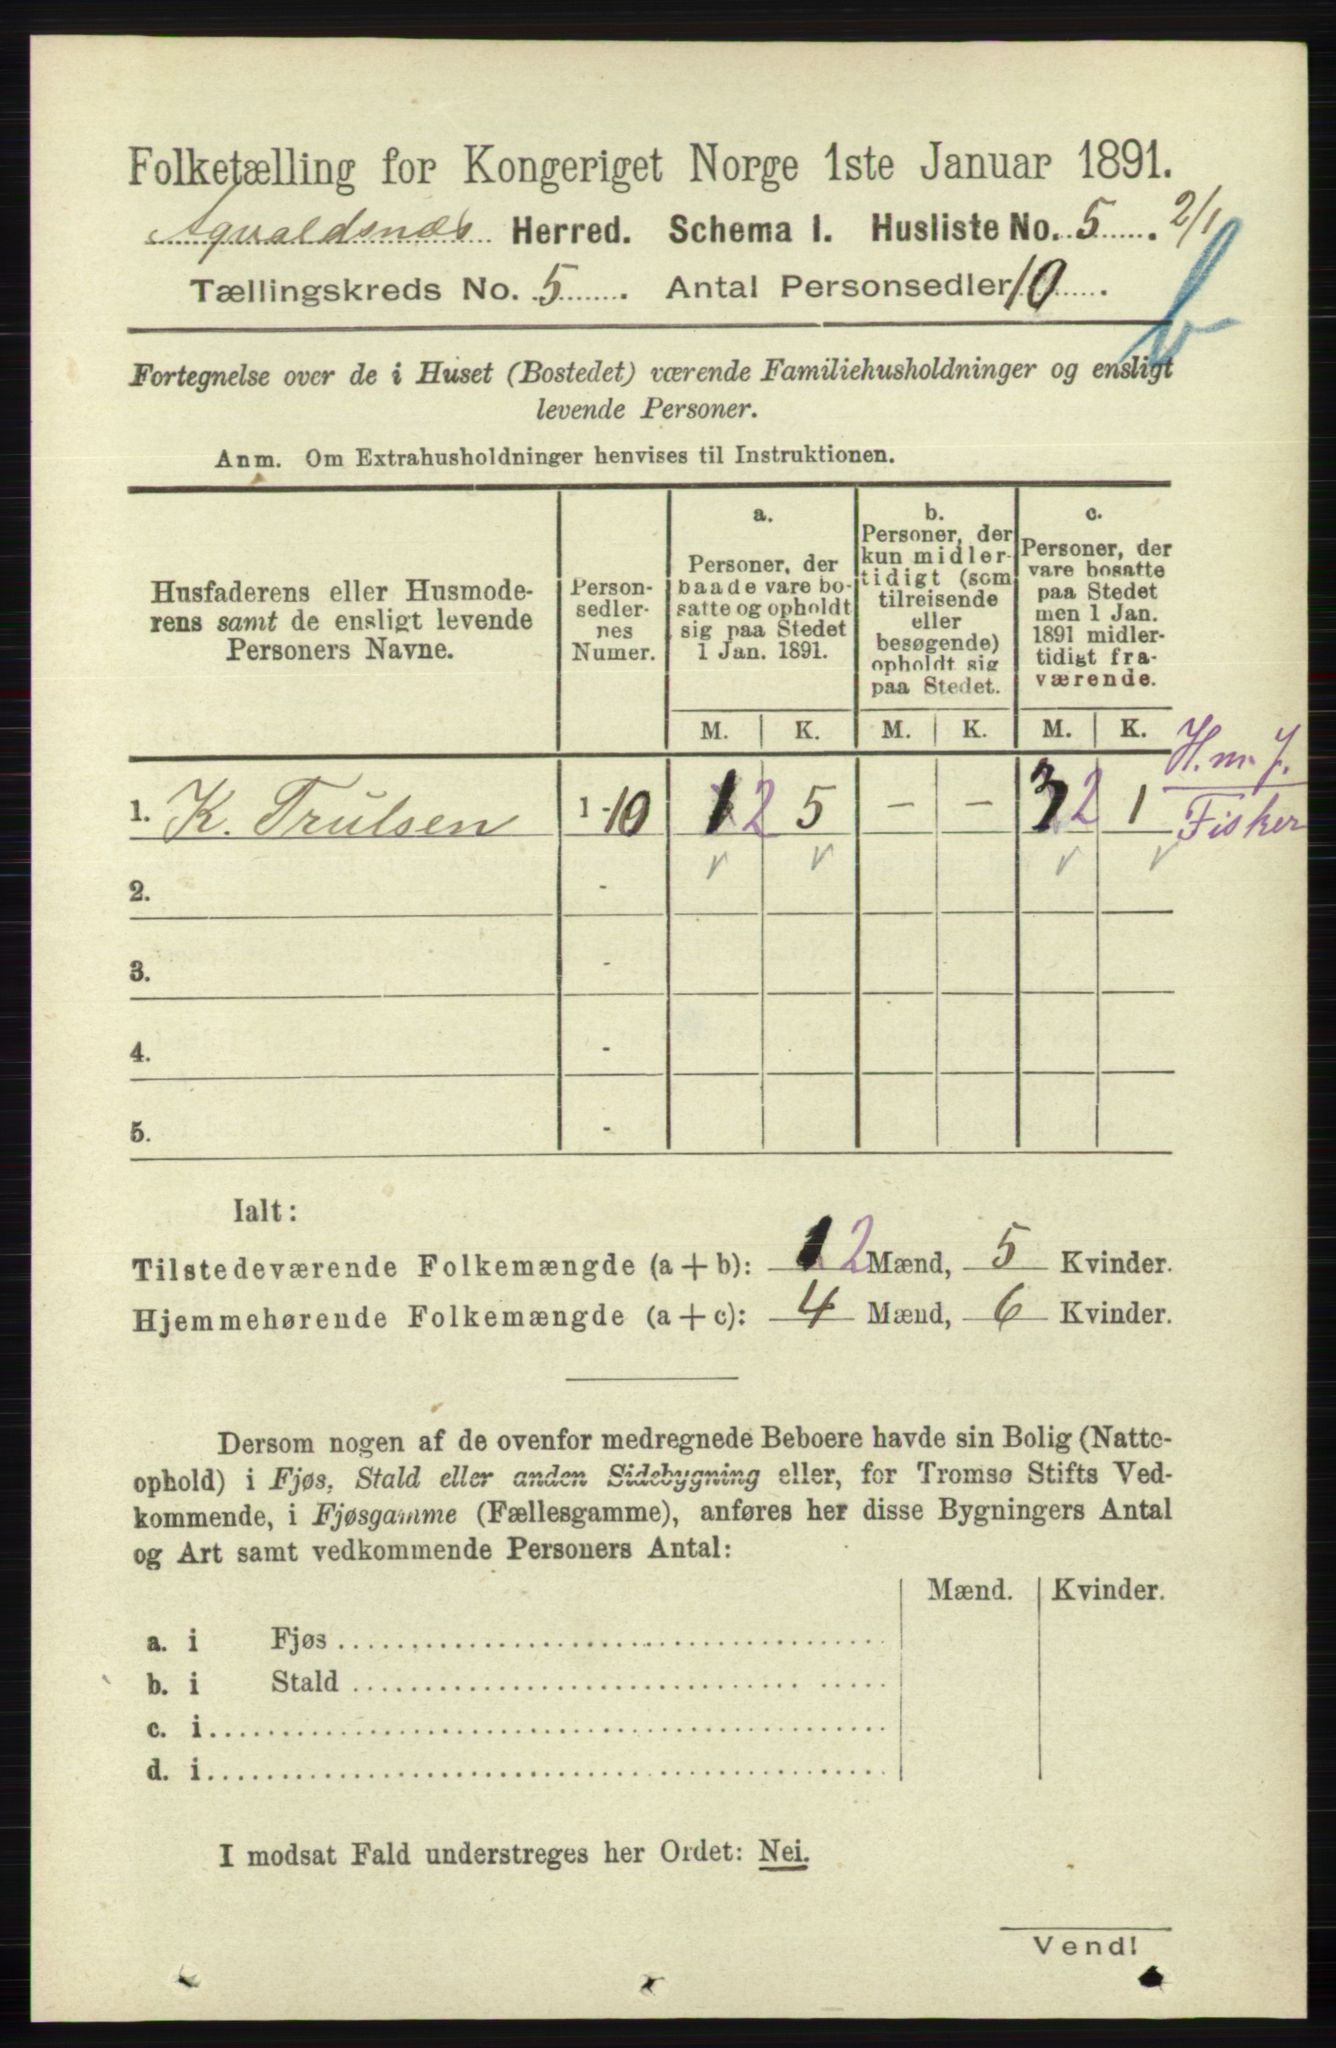 Folketælling for Kongeriget Norge 1ste Januar 1891.
Agvaldsnæs Herred. Schema I. Husliste No. 5. 2/1
Tællingskreds No. 5. Antal Personsedler 10.
b
Fortegnelse over de i Huset (Bostedet) værende Familiehusholdninger og ensligt
levende Personer.
Anm. Om Extrahusholdninger henvises til Instruktionen.
Husfaderens eller Husmode-
rens samt de ensligt levende
Personers Navne.
Person-
sedler-
nes
Numer.
a.
Personer, der
baade vare bo-
satte og opholdt
sig paa Stedet
1 Jan. 1891.
b.
Personer, der
kun midler-
tidigt (som
tilreisende
eller
besøgende)
opholdt sig
paa Stedet.
c.
Personer, der
vare bosatte
paa Stedet
men 1 Jan.
1891 midler-
tidigt fra-
værende.
M. K. M. K. M. K.
1. K. Trulsen 1-10 1 2 5 - - 3 2 1 H. m. J.
Fisker
2. -
3. -
4. -
5. -
Ialt:
Tilstedeværende Folkemængde (a + b): 1 2 Mænd, 5 Kvinder.
Hjemmehørende Folkemængde (a + c): 4 Mænd, 6 Kvinder.
Dersom nogen af de ovenfor medregnede Beboere havde sin Bolig (Natte-
ophold) i Fjøs, Stald eller anden Sidebygning eller, for Tromsø Stifts Ved-
kommende, i Fjøsgamme (Fællesgamme), anføres her disse Bygningers Antal
og Art samt vedkommende Personers Antal:
Mænd. Kvinder.
a. i Fjøs
b. i Stald
c. i
d. i
I modsat Fald understreges her Ordet: Nei.
Vend!